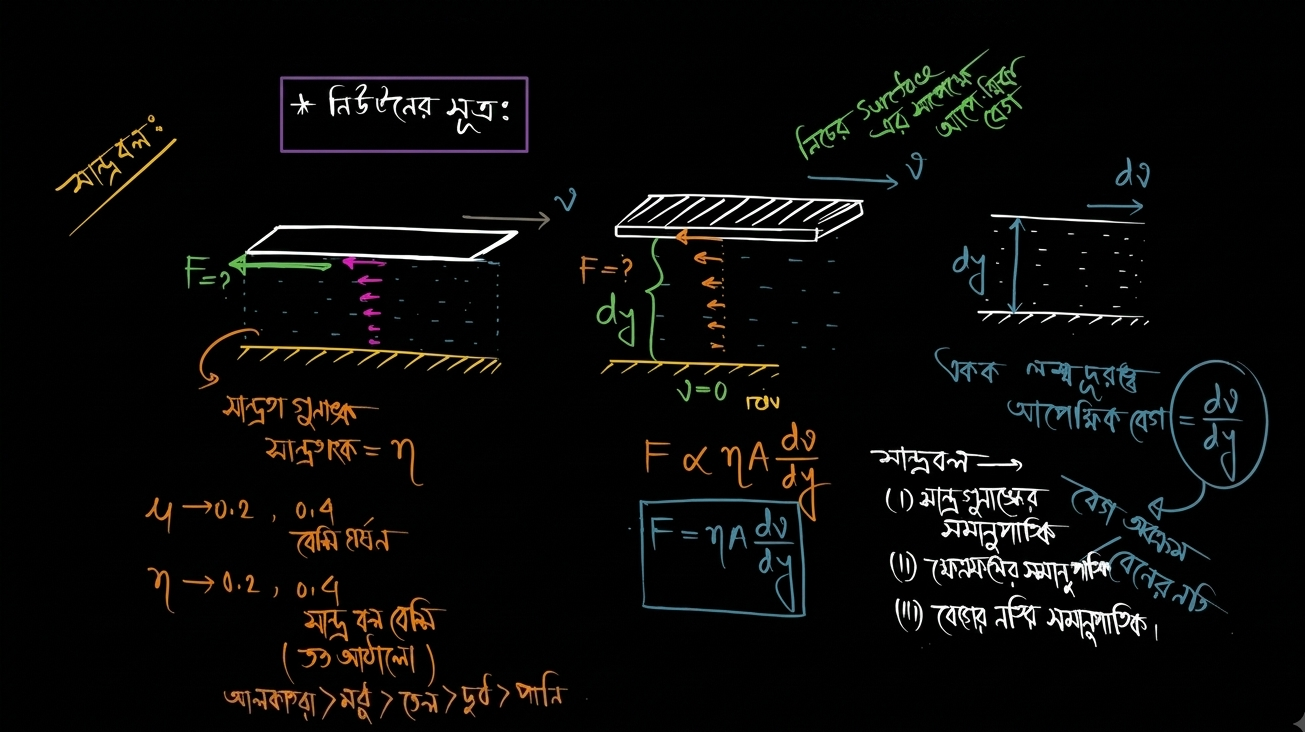 * নিউটনের সূত্র:
সান্দ্রবল:
নিচের surface
এর সাপেক্ষে
আপেক্ষিক
বেগ
v
v
dv
F=?
F=?
dy
dy
v=0
সান্দ্রতা গুনাঙ্ক
সান্দ্রতাংক = η
μ → 0.2 , 0.4
বেশি ঘর্ষন
η → 0.2 , 0.4
সান্দ্র বল বেশি
(তত আঠালো)
আলকাতরা > মধু > তেল > দুধ > পানি
F ∝ ηA dv/dy
F = ηA dv/dy
একক লম্ব দূরত্বে
আপেক্ষিক বেগ = dv/dy
বেগ অবক্রম
বেগের নতি
সান্দ্রবল →
(i) সান্দ্র গুনাঙ্কের
সমানুপাতিক
(ii) ক্ষেত্রফলের সমানুপাতিক
(iii) বেগের নতির সমানুপাতিক।